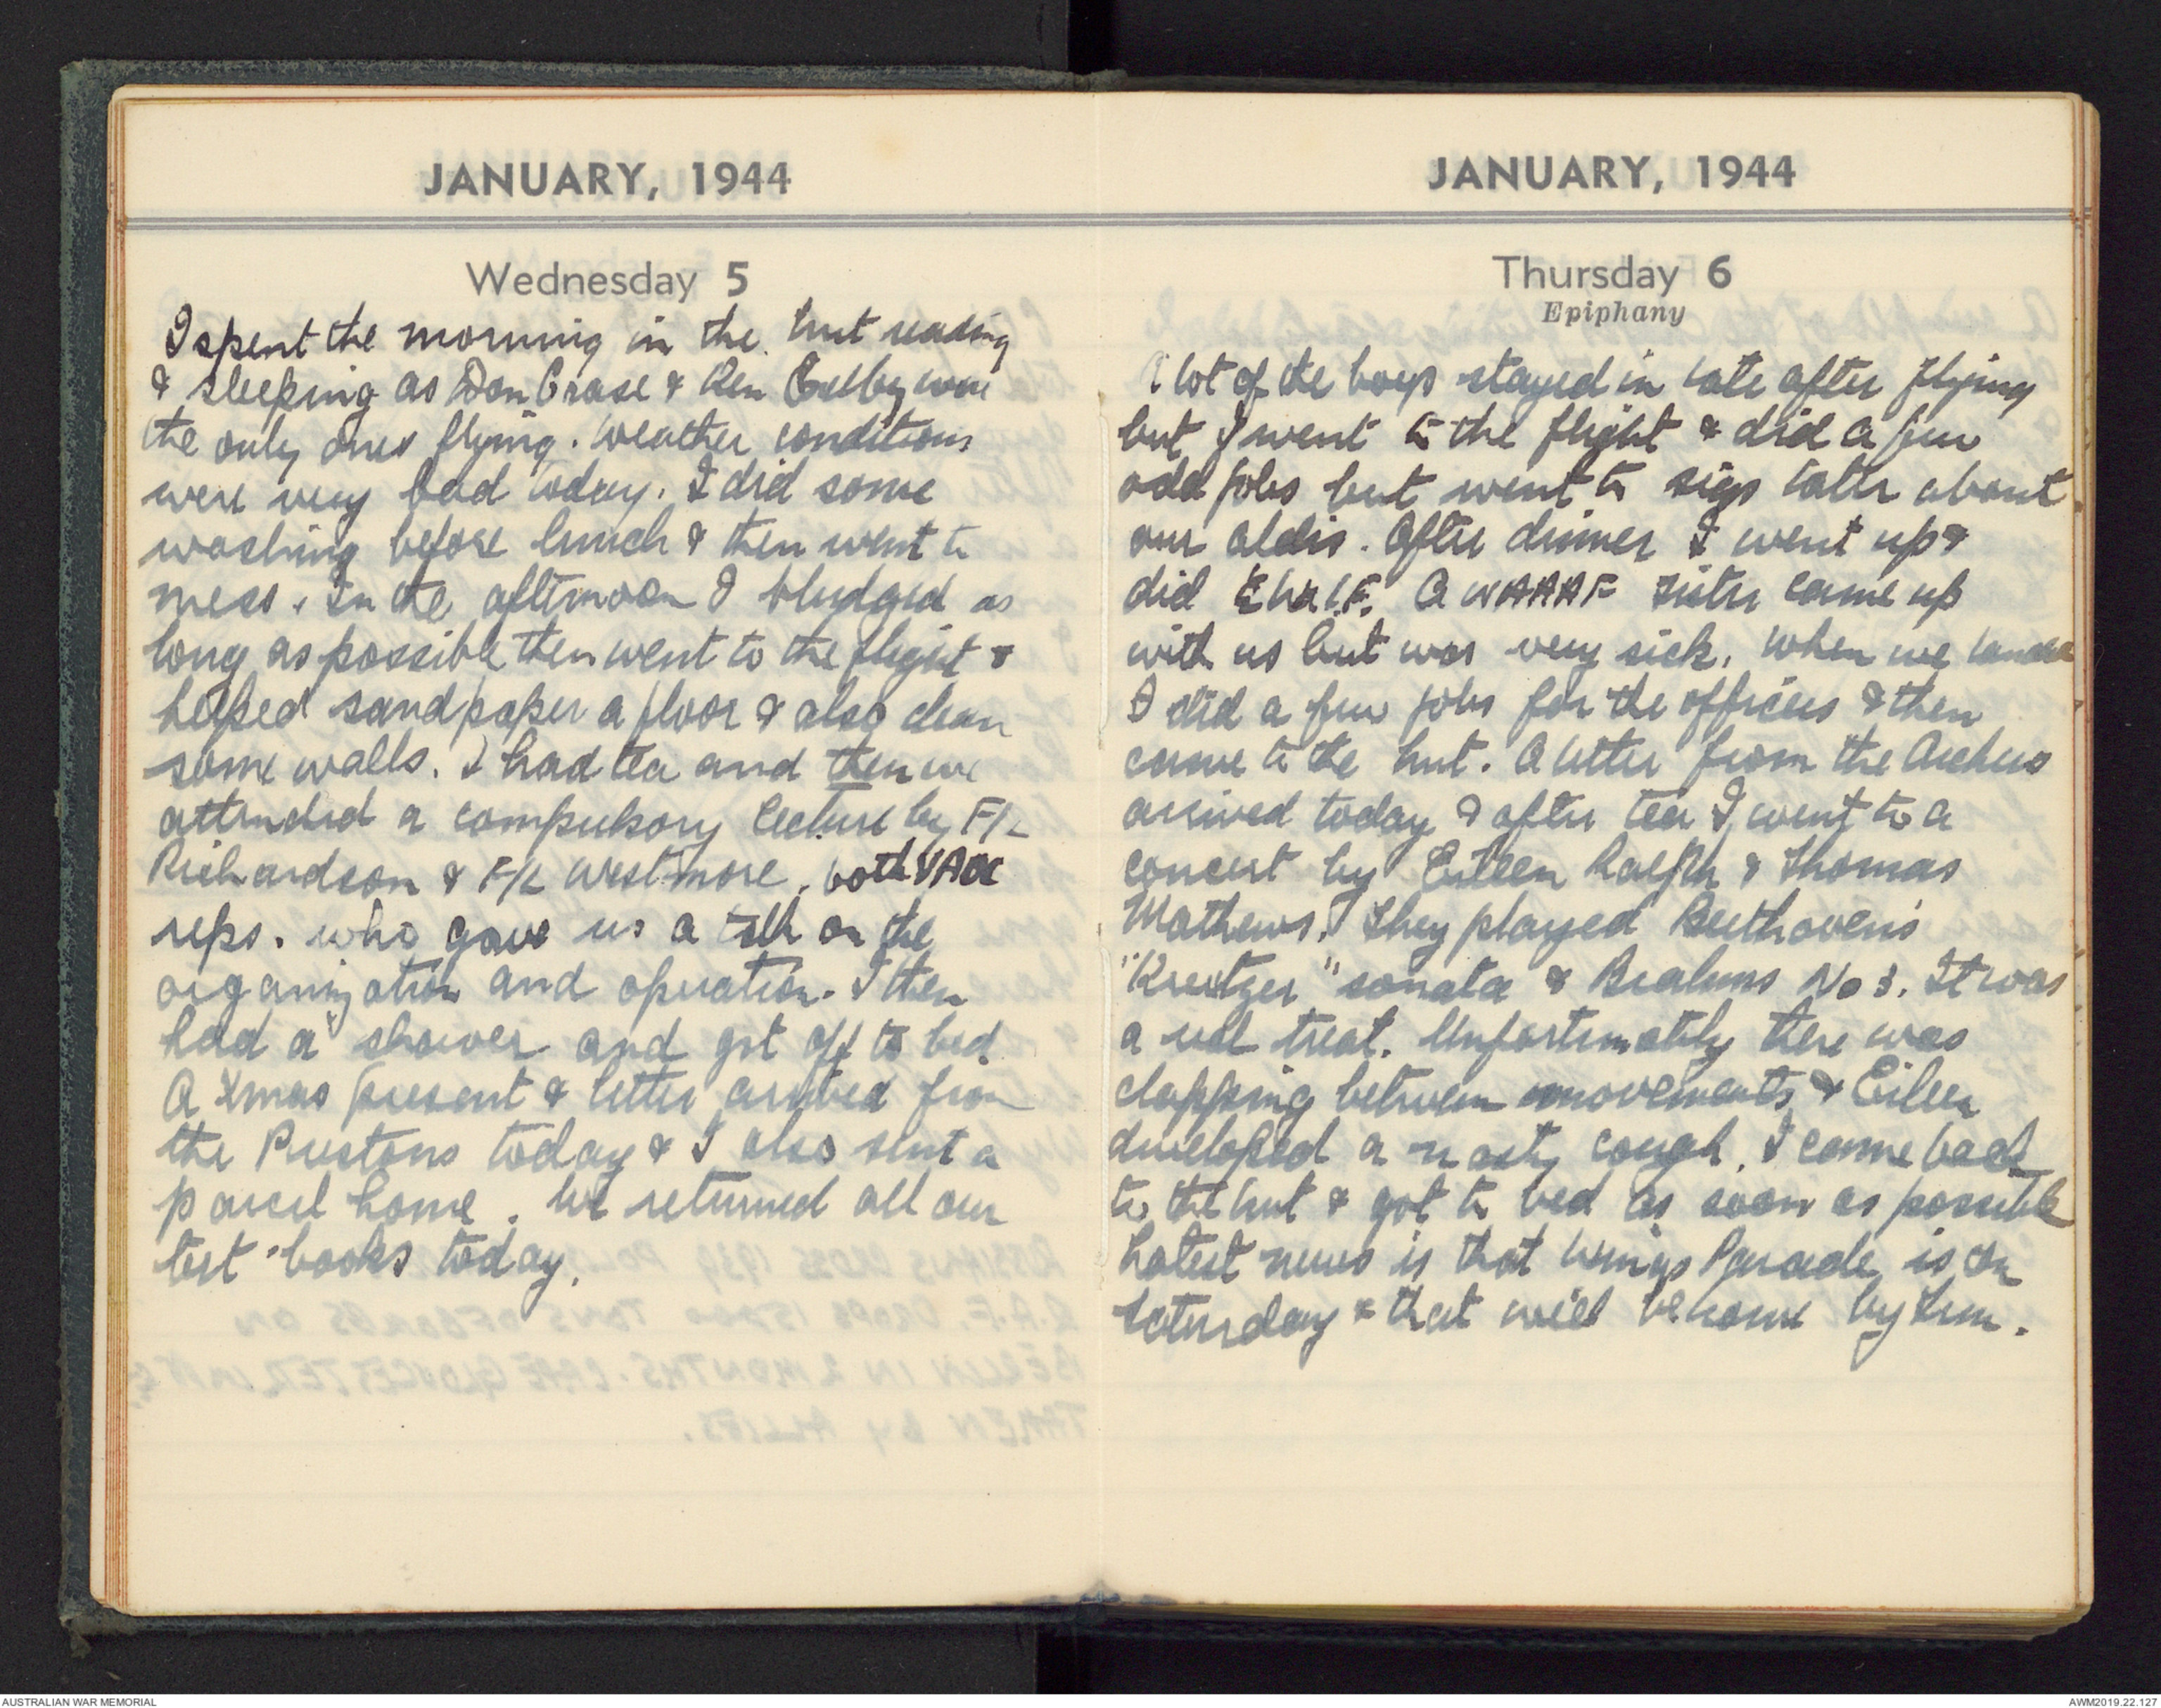 JANUARY, 1944
Wednesday 5
I spent the morning in the hut reading
& sleeping as Don Crase & Ken were
the only ones flying. Weather conditions
were very bad today. I did some
washing before lunch & then went to
mess. In the afternoon I bludged as
long as possible then went to the flight &
helped sandpaper a floor & also clean
some walls. I had tea and then we
attended a compulsory lecture by F/L
Richardson & F/L Westmore, both VAOC
reps. who gave us a talk on the
organization and operation. I then
had a shower and got off to bed
A Xmas present & letter arrived from
the Prestons today & I also sent a
parcel home. We returned all our
text books today.
JANUARY, 1944
Thursday 6
Epiphany
A lot of the boys stayed in late after flying
but I went to the flight & did a few
odd jobs but went to sigs later about
our aldis. After dinner I went up &
did A WAAAF sister came up
with us but was very sick. When we landed
I did a few jobs for the officers & then
came to the hut. A letter from the Archers
arrived today & after tea I went to a
concert by Eileen Ralph & Thomas
Mathews. They played Beethoven's
"Kreutzer" sonata & Brahms No 3. It was
a real treat. Unfortunately there was
clapping between movements & Eileen
developed a nasty cough. I came back
to the hut & got to bed as soon as possible
Latest news is that Wings Parade is on
Saturday & that will be home by
AUSTRALIAN WAR MEMORIAL
AWM2019.22.127